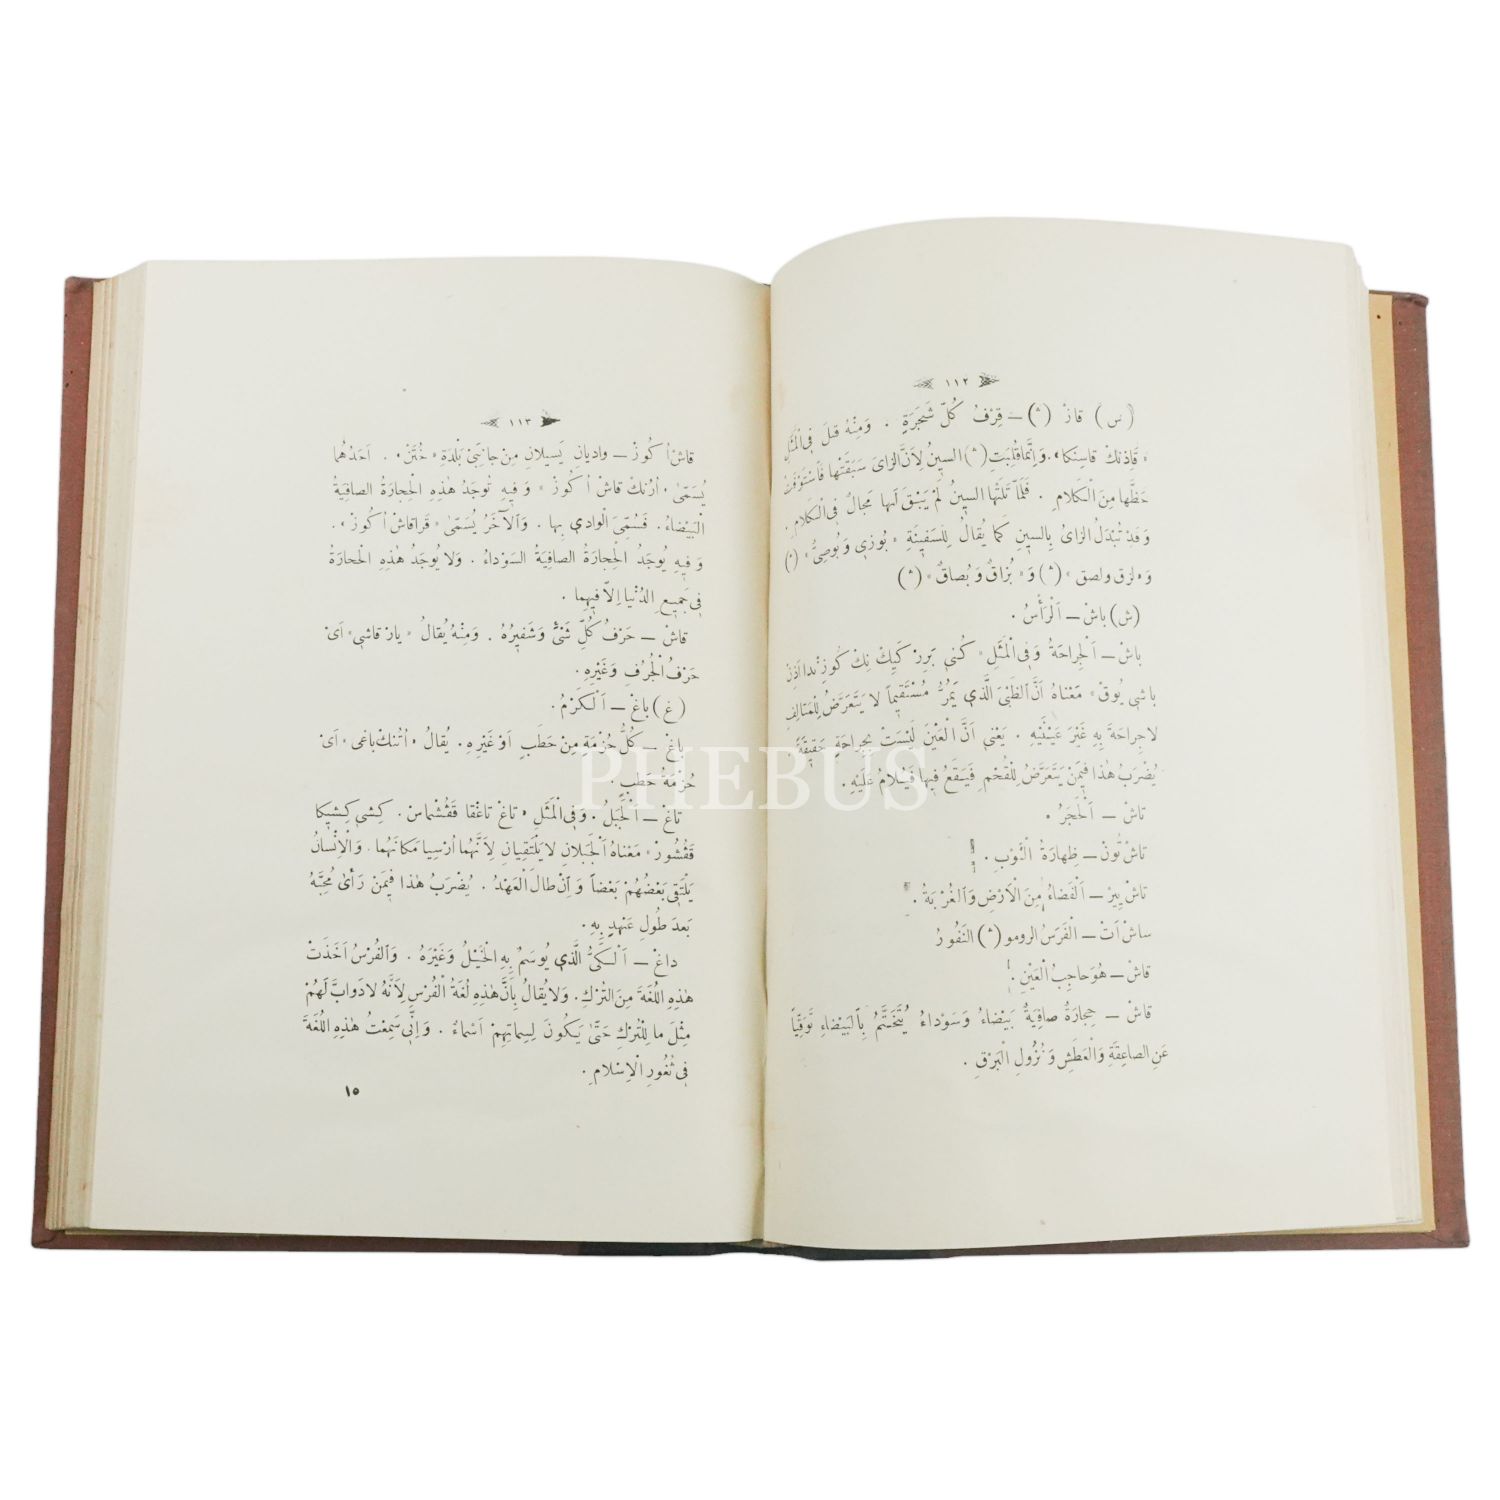 ١١٢
(س) قاز (*) ـ قِرْفُ كُلِّ شَجَرَةٍ . وَمِنْهُ قيلَ فِى الْمَثَلِ
« قَاذِنكْ قاسِنكا ». وَاِنَّمَا قُلِبَتِ (*) السينُ لِاَنَّ الزاىَ سَبَقَتْها فَاسْتَوْفَتْ
حَظَّها مِنَ الْكَلامِ . فَلَمَّا تَلَتْهَا السينُ لَمْ يَبْقَ لَها مَجالٌ فِى الْكَلامِ .
وَقَدْ تُبْدَلُ الزاىُ بِالسينِ كَما يُقالُ لِلسَفينَةِ « بُوزِىٌّ وَبُوصِىٌّ » (*)
وَ« لزق ولصق » (*) وَ« بُزاقٌ وَبُصاقٌ » (*)
(ش) باشْ ـ اَلرَأْسُ .
باشْ ـ اَلْجِراحَةُ وَفِى الْمَثَلِ « كُنى بَرِرْ كَيِكْ نِكْ كُوزِنْدا اَذِنْ
باشى يُوقْ » مَعْناهُ اَنَّ الظَبْىَ الَّذى يَمُرُّ مُسْتَقيماً لا يَتَعَرَّضُ لِلْمَتالِفِ
لاجِراحَةَ بِهِ غَيْرَ عَيْنَيْهِ . يَعْنى اَنَّ الْعَيْنَ لَيْسَتْ بِجِراحَةٍ حَقيقَةً
يُضْرَبُ هٰذا فيمَنْ يَتَعَرَّضُ لِلْقُحَمِ فَيَقَعُ فيها فَيُلامُ عَلَيْهِ .
تاشْ ـ اَلْحَجَرُ .
تاشْ تُونْ ـ ظِهارَةُ الثَّوْبِ .
تاشْ يِيرْ ـ اَلْفَضاءُ مِنَ الْاَرْضِ وَالْغُرْبَةُ .
ساشْ اَتْ ـ اَلْفَرَسُ الرومو (*) النَفُورُ
قاشْ ـ هُوَ حاجِبُ الْعَيْنِ .
قاشْ ـ حِجارَةٌ صافِيَةٌ بَيْضاءُ وَسَوْداءُ يُتَخَتَّمُ بِالْبَيْضاءِ تَوَقِّياً
عَنِ الصاعِقَةِ وَالْعَطَشِ وَنُزُولِ الْبَرْقِ .
١١٣
قاشْ اُ كُوزْ ـ وادِيانِ يَسيلانِ مِنْ جانِبَىْ بَلْدَةِ « خُتَنْ » . اَحَدُهُما
يُسَمّٰى « اُرُنكْ قاش اُ كُوزْ » وَفيهِ تُوجَدُ هٰذِهِ الْحِجارَةُ الصافِيَةُ
الْبَيْضاءُ . فَسُمِّىَ الْوادى بِها . وَالْآخَرُ يُسَمّٰى « قَراقاش اُ كُوزْ » .
وَفيهِ يُوجَدُ الْحِجارَةُ الصافِيَةُ السَوْداءُ . وَلا يُوجَدُ هٰذِهِ الْحجارَةُ
فى جَميعِ الدُنْيا اِلاَّ فيهِما .
قاشْ ـ حَرْفُ كُلِّ شَىْءٍ وَشَفيرُهُ . وَمِنْهُ يُقالُ « يارْ قاشى » اَىْ
حَرْفُ الْجُرُفِ وَغَيْرِهِ .
(غ) باغْ ـ اَلْكَرْمُ .
باغْ ـ كُلُّ حُزْمَةٍ مِنْ حَطَبٍ اَوْ غَيْرِهِ . يُقالُ « اُتُنكْ باغى » اَىْ
حُزْمَةُ حَطَبٍ .
تاغْ ـ اَلْجَبَلُ . وَفِى الْمَثَلِ « تاغْ تاغْقا قَفُشْماسْ . كِشى كِشيكا
قَفْشُورْ » مَعْناهُ اَلْجَبَلانِ لا يَلْتَقِيانِ لِاَنَّهُما اُرْسِيا مَكانَهُما . وَالْاِنْسانُ
يَلْتَقى بَعْضُهُمْ بَعْضاً وَاِنْ طالَ الْعَهْدُ . يُضْرَبُ هٰذا فيمَنْ رَأٰى مُحِبَّهُ
بَعدَ طُولِ عَهْدٍ بِهِ .
داغْ ـ اَلْكَىُّ الَّذى يُوسَمُ بِهِ الْخَيْلُ وَغَيْرُهُ . وَالْفُرْسُ اَخَذَتْ
هٰذِهِ اللُغَةَ مِنَ التُرْكِ . وَلا يُقالُ بِاَنَّ هٰذِهِ لُغَةُ الْفُرْسِ لِاَنَّهُ لا دَوابَّ لَهُمْ
مِثْلَ ما لِلتُرْكِ حَتّٰى يَكُونَ لِسِماتِهِمْ اَسْماءٌ . وَاِنّى سَمِعْتُ هٰذِهِ اللُغَةَ
فى ثُغُورِ الْاِسْلامِ .
١٥
PHEBUS